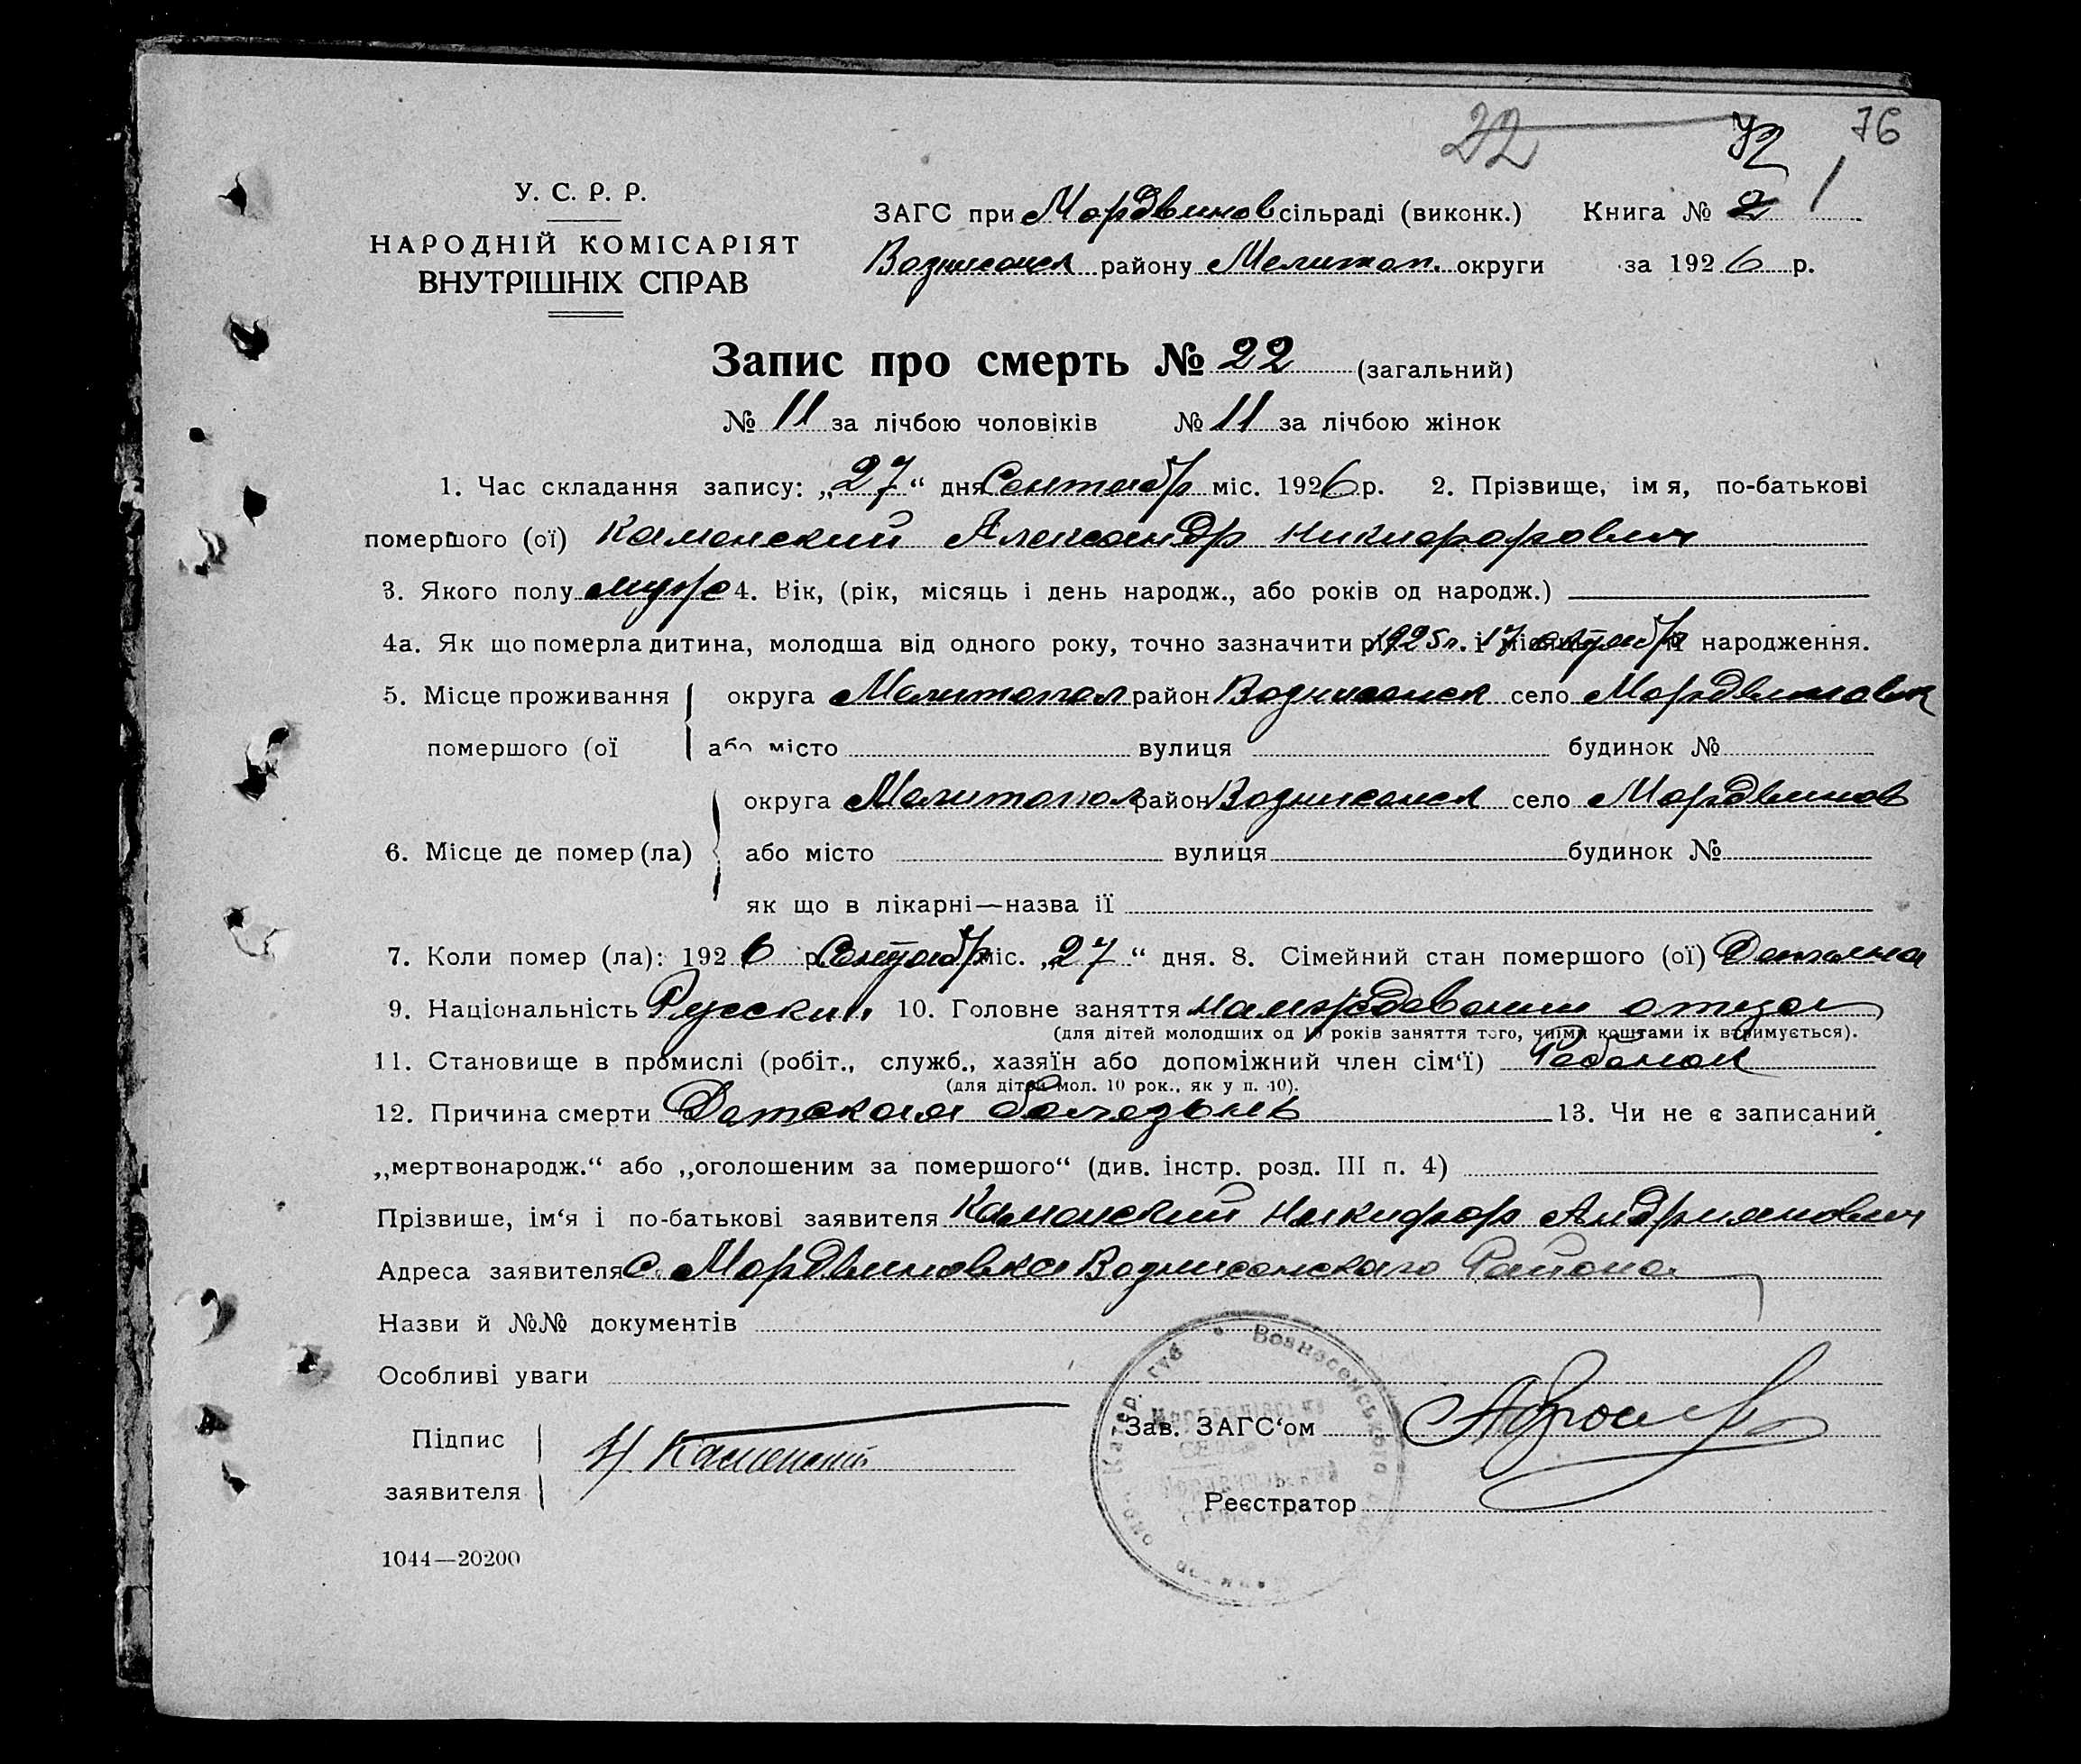 22 72 76
У. С. Р. Р.
НАРОДНІЙ КОМІСАРІЯТ
ВНУТРІШНІХ СПРАВ
ЗАГС при Мордвинов сільраді (виконк.) Книга № 2 1
Вознисенск району Мелитоп. округи за 1926 р.
Запис про смерть № 22 (загальний)
№ 11 за лічбою чоловіків № 11 за лічбою жінок
1. Час складання запису: „27“ дня Сентибр міс. 1926 р. 2. Прізвище, імя, по-батькові
першого (ої) Каменский Александр Никифорович
3. Якого полу муже 4. Вік, (рік, місяць і день народж., або років од народж.)
4а. Як що померла дитина, молодша від одного року, точно зазначити рік 1925 г. і місяць 17 октября народження.
5. Місце проживання округа Мелитопол район Вознисенск село Мордвиновк
помершого (ої або місто вулиця будинок №
округа Мелитопол район Вознисенск село Мордвинов
6. Місце де помер (ла) або місто вулиця будинок №
як що в лікарні—назва ії
7. Коли помер (ла): 1926 р. Сентибр міс. „27“ дня. 8. Сімейний стан помершого (ої)
9. Національність Русский 10. Головне заняття на иждевении отца
(для дітей молодших од 10 років заняття того, чиїми коштами іх втримується).
11. Становище в промислі (робіт., служб., хазяїн або допоміжний член сім‘ї) Ребенок
(для дітей мол. 10 рок., як у п. 10).
12. Причина смерти Детская болезынь 13. Чи не є записаний
„мертвонародж.“ або „оголошеним за помершого“ (див. інстр. розд. III п. 4)
Прізвише, ім‘я і по-батькові заявителя Каменский Никифор Андриянович
Адреса заявителя С. Мордвиновка Вознисенского Района
Назви й №№ документів
Особливі уваги
Підпис
заявителя Н. Каменский
Зав. ЗАГС‘ом
Реєстратор
Вознесенського
Катер. губ
1044—20200